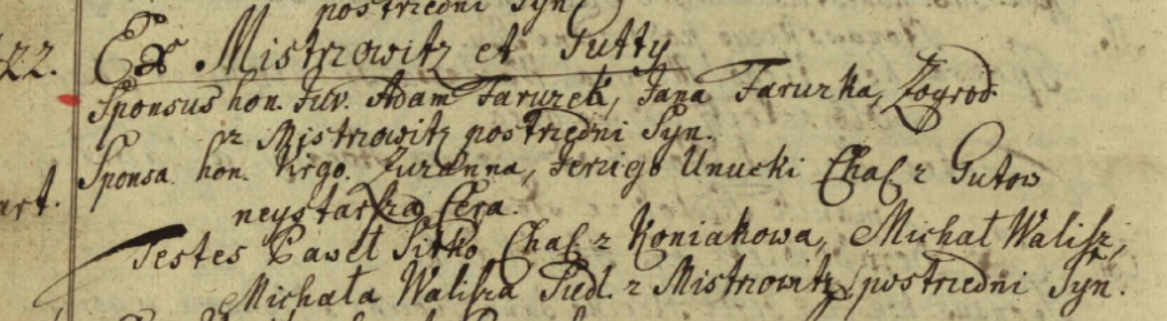 postrzedni Syn
22. Ex Mistrzowitz et Gutty
Sponsus hon. Juv. Adam Faruzek, Jana Faruzka, Zogrod
z Mistrzowitz postrzedni Syn.
Sponsa hon. Virgo. Zuzanna, Jerzigo Unucki Chał z Gutow
neystarsza Cera.
art.
Testes Paweł Sitko Chał. z Koniakowa, Michał Walisz,
Michała Walisza Siedl. z Mistrzowitz postrzedni Syn.